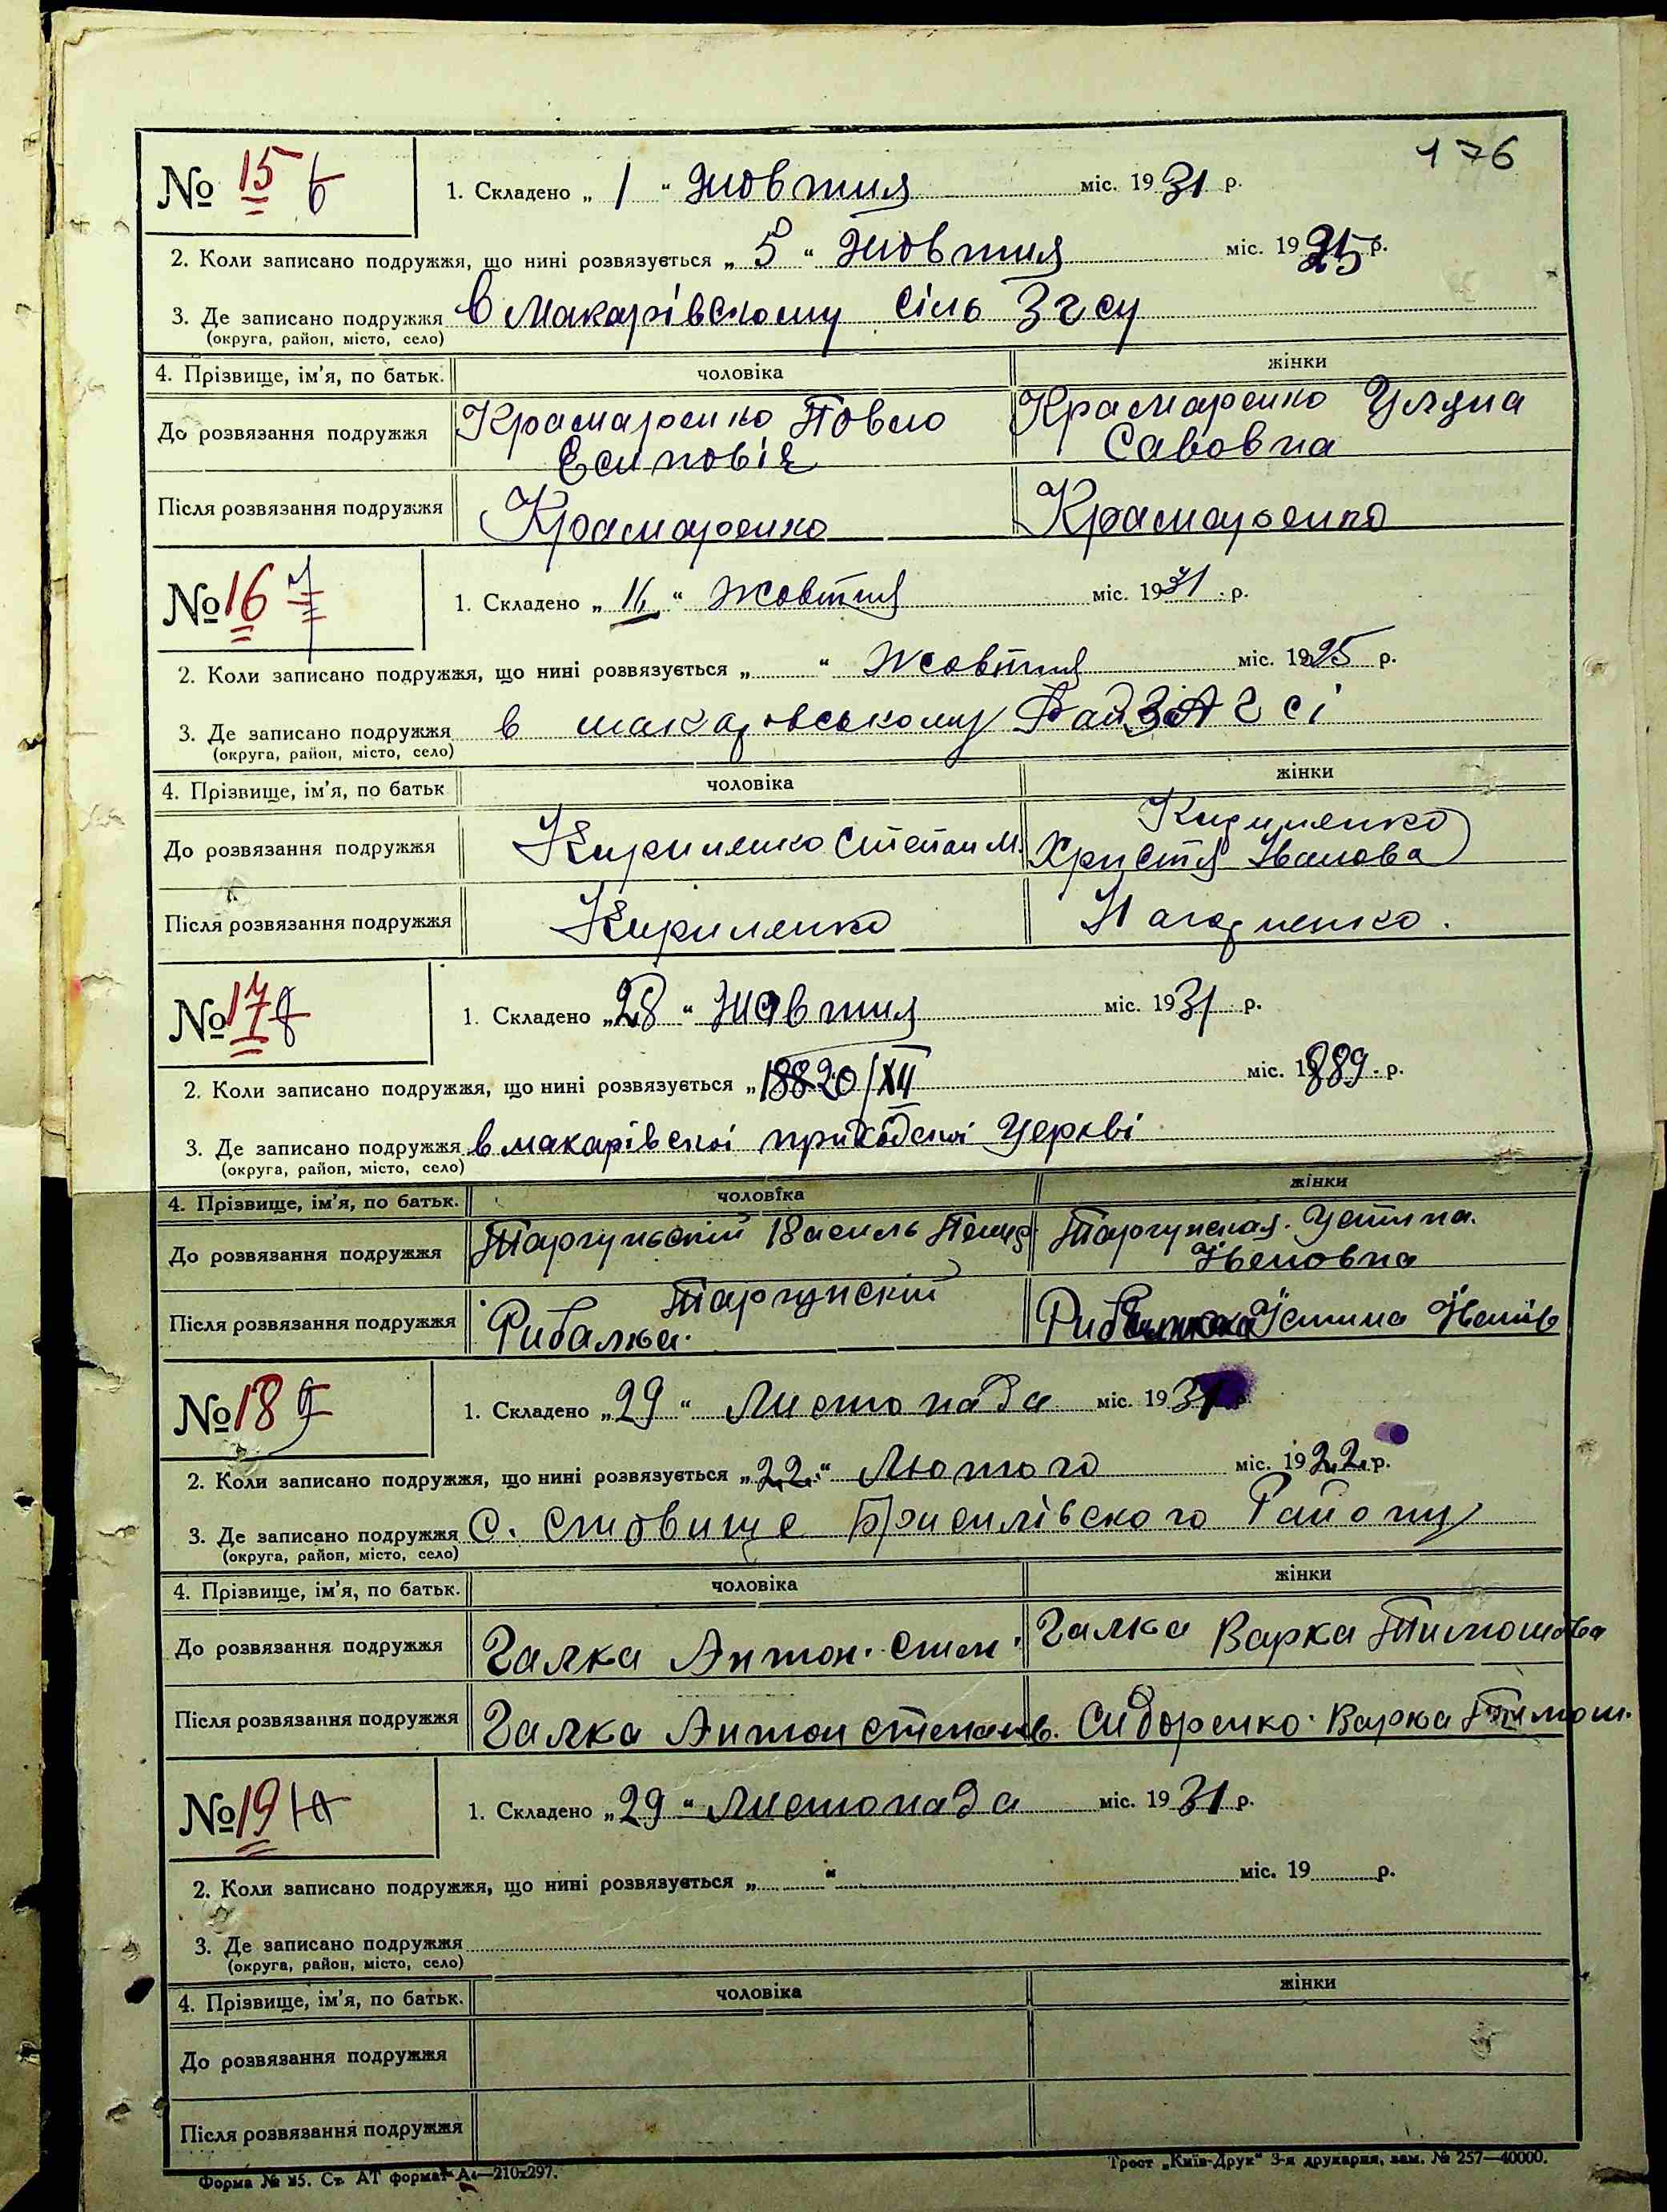 176
№ 15 6
1. Складено „ 1 " Жовтня міс. 1931 р.
2. Коли записано подружжя, що нині розвязується „ 5 " Жовтня міс. 1925 р.
3. Де записано подружжя в Макарівському сіль Загсу
(округа, район, місто, село)
4. Прізвище, ім'я, по батьк. чоловіка жінки
До розвязання подружжя Крамаренко Повло Есиповіч Крамаренко Уляна Савовна
Після розвязання подружжя Крамаренко Крамаренко
№ 16 7
1. Складено „ 16 " Жовтня міс. 1931 р.
2. Коли записано подружжя, що нині розвязується „ " Жовтня міс. 1925 р.
3. Де записано подружжя в макаровському Рай ЗАГСі
(округа, район, місто, село)
4. Прізвище, ім'я, по батьк чоловіка жінки
До розвязання подружжя Кириленко Степан М. Кириленко Христя Іванова
Після розвязання подружжя Кириленко
№ 17 8
1. Складено „ 28 " Жовтня міс. 1931 р.
2. Коли записано подружжя, що нині розвязується „ 20/XII міс. 1889 р.
3. Де записано подружжя в макарівскої приходскої Церкві
(округа, район, місто, село)
4. Прізвище, ім'я, по батьк. чоловіка жінки
До розвязання подружжя Таргунський Василь Таргунская Устина Івановна
Після розвязання подружжя Рибалка Таргунский Устина Іванів
№ 18 9
1. Складено „ 29 " Листопада міс. 1931 р.
2. Коли записано подружжя, що нині розвязується „ 22 " Лютого міс. 1922 р.
3. Де записано подружжя С. Ставище Брусилівского Району
(округа, район, місто, село)
4. Прізвище, ім'я, по батьк. чоловіка жінки
До розвязання подружжя Галка Антон Степ. Галка Варка Тимошова
Після розвязання подружжя Галка Антон Степанов. Сидоренко Варка Тимош.
№ 19 10
1. Складено „ 29 " Листопада міс. 1931 р.
2. Коли записано подружжя, що нині розвязується „ " міс. 19 р.
3. Де записано подружжя
(округа, район, місто, село)
4. Прізвище, ім'я, по батьк. чоловіка жінки
До розвязання подружжя
Після розвязання подружжя
Форма № 25. Ст. АТ формат А4—210x297. Трест „Київ-Друк" 3-я друкарня, зам. № 257—40000.